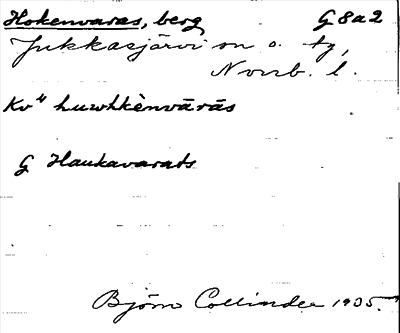 Hokenvaras, berg G 8a2
Jukkasjärvi sn o. tg,
Norrb. l.
Kv" huwhkènvāràs
G Haukavarats
Björn Collinder 1935.